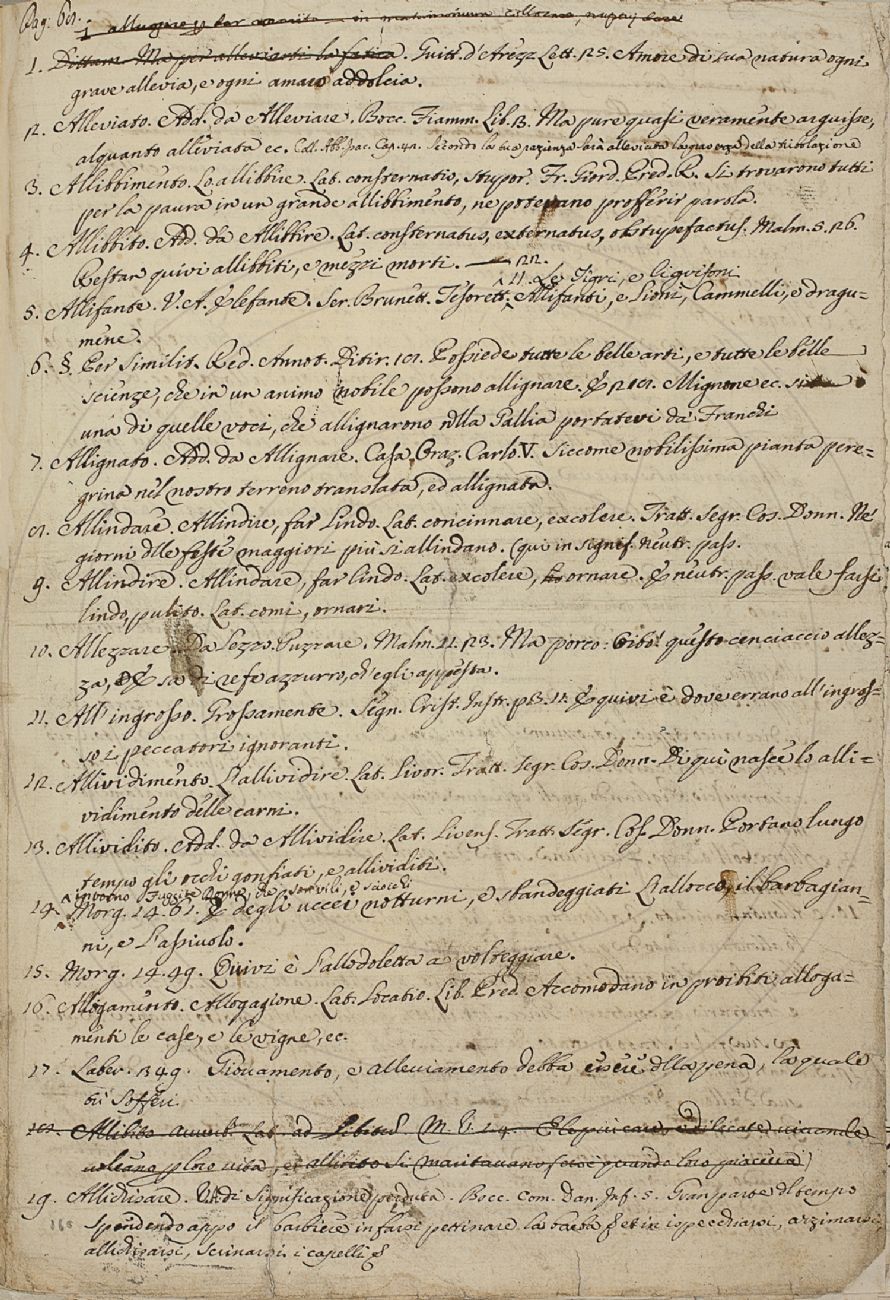 Pag. 68.
1. Dittam. Ma per alleviarti la fatica. Guitt. d'Arezz. Lett. 25. Amore di sua natura ogni
grave allevia, e ogni amaro addolcia.
2. Alleviato. Add. da Alleviare. Bocc. Fiamm. Lib. 3. Ma pure quasi veramente arguisse,
alquanto alleviata ec. Coll. Abb. Isac. Cap. 42. Secondo la tua pazienza sarà alleviata la gravezza della tribolazione
3. Allibbimento. Lo allibbire. Lat. consternatio, stupor. Fr. Giord. Pred. R. Si trovarono tutti
per la paura in un grande allibbimento, ne potevano profferir parola.
4. Allibbito. Add. da Allibbire. Lat. consternatus, externatus, obstupefactus. Malm. 5. 26.
Restar quivi allibbiti, e mezzi morti. — 22.
21. Le Tigri, e
5. Allifante. V. A. Elefante. Ser. Brunett. Tesorett. Allifanti, e Lioni, Cammelli, e dragu=
mene.
6. §. Per Similit. Red. Annot. Ditir. 18. Possiede tutte le belle arti, e tutte le belle
scienze, che in un animo nobile possono allignare. E 28. Mignone ec.
una di quelle voci, che allignarono nlla Gallia portatevi da Franchi
7. Allignato. Add. da Allignare. Casa Oraz. Carlo V. Siccome nobilissima pianta pere=
grina nel nostro terreno translata, ed allignata.
8. Allindare. Allindire, far Lindo. Lat. concinnare, excolere. Tratt. Segr. Cos. Donn. Ne'
giorni dlle feste maggiori più si allindano. (qui in signif. neutr. pass.
9. Allindire. Allindare, far lindo. Lat. excolere, exornare. E neutr. pass. vale farsi
lindo, pulito. Lat. comi, ornari.
10. Allezzare. Da Lezzo. Puzzare. Malm. 11. 23. Ma porco: Oibò! questo cenciaccio allez=
za, E sa di refe azzurro, ch'egli appesta.
11. All'ingrosso. Grossamente. Segn. Crist. Instr. p. 3. 11. E quivi è dove errano all'ingros=
so i peccatori ignoranti.
12. Allividimento. L'allividire. Lat. Livor. Tratt. Segr. Cos. Donn. Di qui nasce lo alli=
vidimento delle carni.
13. Allividito. Add. da Allividire. Lat. Livens. Tratt. Segr. Cos. Donn. Portano lungo
tempo gli occhi gonfiati, e allividiti.
14. Morg. 14. 61. E degli uccei notturni, e sbandeggiati L'allocco, il barbagian=
ni, e l'assiuolo.
15. Morg. 14. 49. Quivi è l'allodoletta a volteggiare.
16. Allogamento. Allogagione. Lat. Locatio. Lib. Pred. Accomodano in proibiti alloga=
menti le case, e le vigne, ec.
17. Laber. 349. Giovamento, e alleviamento debba essere dlla pena, la quale
tu sofferi.
18. Allibito avverb. Lat. ad Libitum M. V. 1. 4. E le più care, e dilicate vivande
voleano loro vita, e allibito si maritavano eziandio quando loro piaceva)
19. Allidirare. V. A. di significazione perduta. Bocc. com. Dan. Inf. 5. Gran parte dl tempo
spendendo appo il barbiere in farsi pettinare la barba et in ispecchiarsi, azzimarsi,
allidirarsi, scrinarsi i capelli